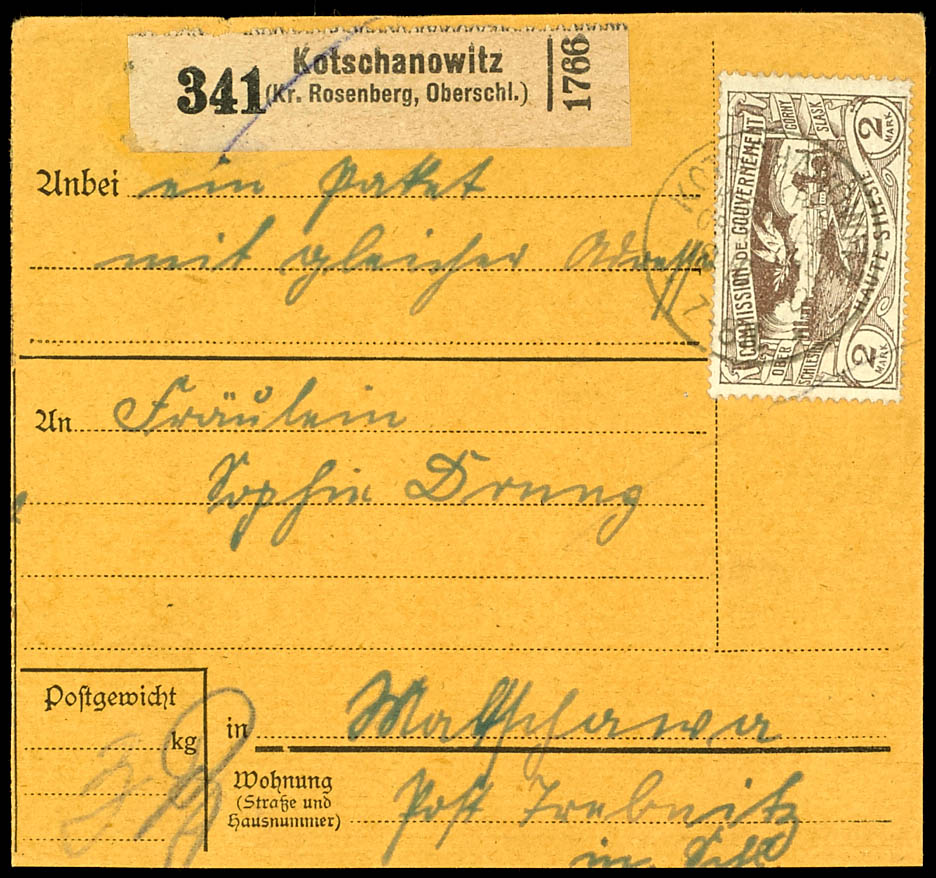 341 Kotschanowitz
(Kr. Rosenberg, Oberschl.)
1766
COMMISSION DE GOUVERNEMENT
GORNY
SLASK
OBER
SCHLESIEN
HAUTE SILESIE
2
MARK
2
MARK
Anbei ein Paket
mit gleicher Adresse
An Fräulein
Sophie Drung
Postgewicht
kg
in Malschawa
Wohnung
(Straße und
Hausnummer)
Post Trebnitz
in Schl